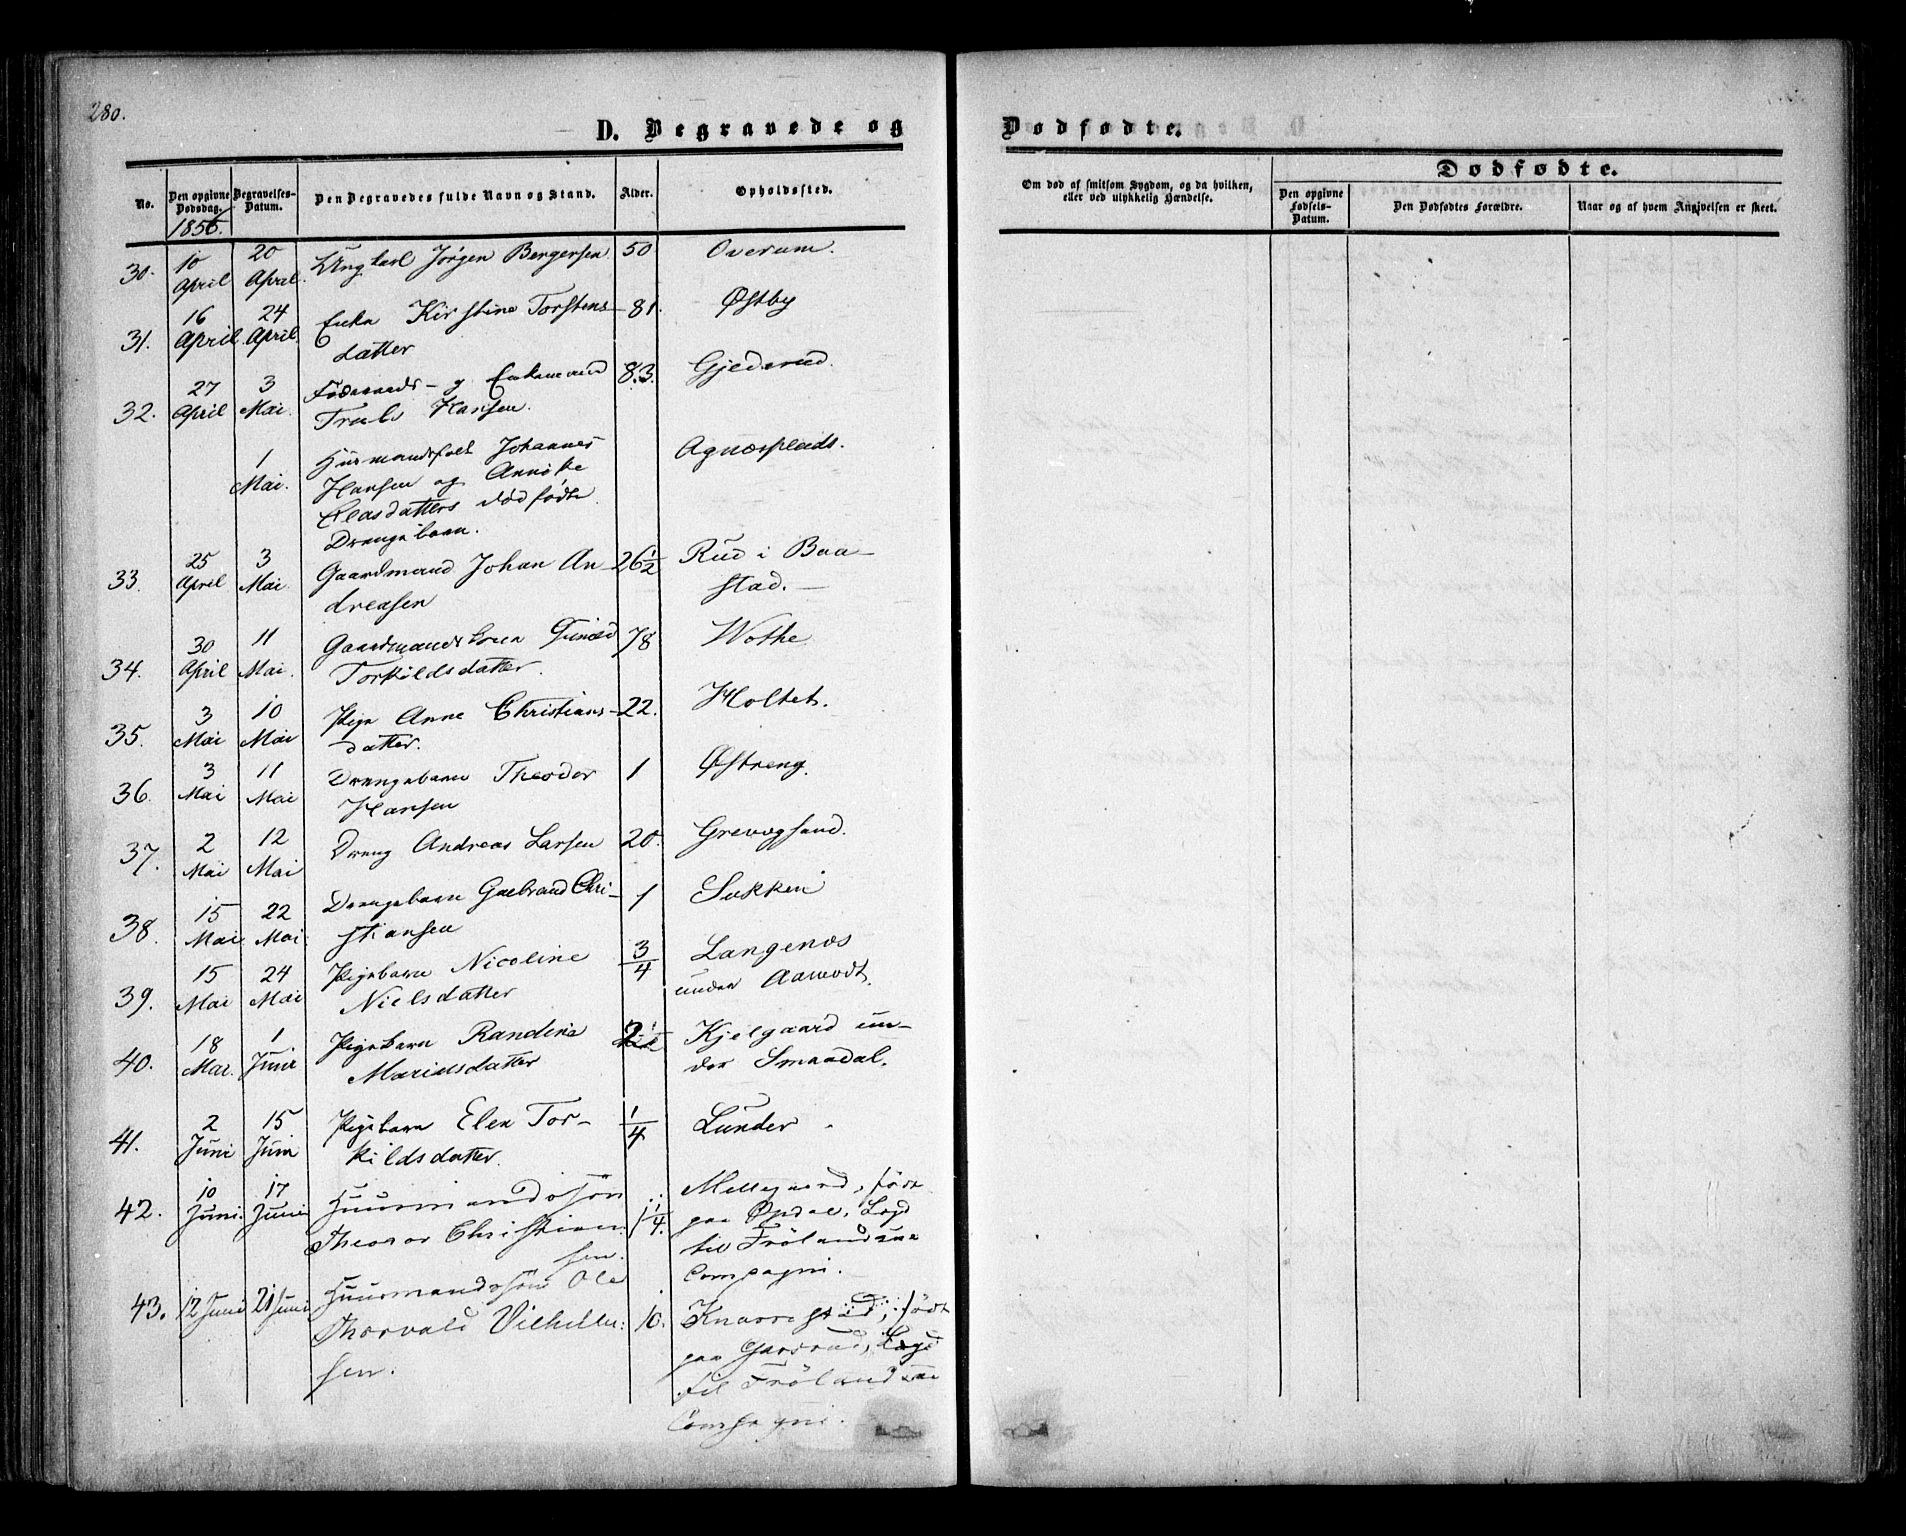 280.
D. Begravede og
Dødfødte.
No.
Den opgivne Dødsdag.
Begravelses-Datum.
Den Begravedes fulde Navn og Stand.
Alder.
Opholdssted.
Om død af smitsom Sygdom, og da hvilken, eller ved ulykkelig Hændelse.
Dødfødte.
Den opgivne Fødsels-Datum.
Den Dødfødtes Forældre.
Naar og af hvem Angivelsen er skeet.
1856.
30. 10 April 20 April. Ungkarl Jørgen Bergersen 50 Overum.
31. 16 April. 24 April. Enka Kirstine Torstens- 81. Østby
datter
32. 27 April 3 Mai. Föderaads- og Enkemand 83. Gjederud.
Truls Hansen.
1 Mai. Husmandsfolk Johannes Agnæsplads.
Hansen og
dødfødte
Drengebarn.
33. 25 April 3 Mai. Gaardmand Johan An- 26½ Rud i Baa-
dreasen stad.
34. 30 April 11 Mai. Gaardmands 78 Wothe
Torkildsdatter.
35. 3 Mai 10 Mai Pige Anne Christians- 22. Holtet.
datter.
36. 3 Mai 11 Mai Drengebarn Theodor 1 Østreng.
Hansen
37. 2 Mai 12 Mai Dreng Andreas Larsen 20. Grevegsand.
38. 15 Mai 22 Mai. Drengebarn Gulbrand Chri- 1 Sukken
stiansen
39. 15 Mai 24 Mai Pigebarn Nicoline 3/4 Langenæs
Nielsdatter under Aamodt.
40. 18 Mai. 1 Juni Pigebarn Randine Kjelgaard un-
Mariusdatter der Smaadal.
41. 2 Juni 15 Juni Pigebarn Elen Tor- 1/4 Lunder
kildsdatter.
42. 10 Juni. 17 Juni Huusmandssön 1¼. Mellegaard, født
Theodor Christian- paa Opdal, Lagd
sen. til Frölandske
Compagni.
43. 12 Juni 21 Juni Huusmandssön Ole 10. Knarrestad, født
Thorvald Vilhelm- paa Lagd
sen. til Frölandske
Compagni.